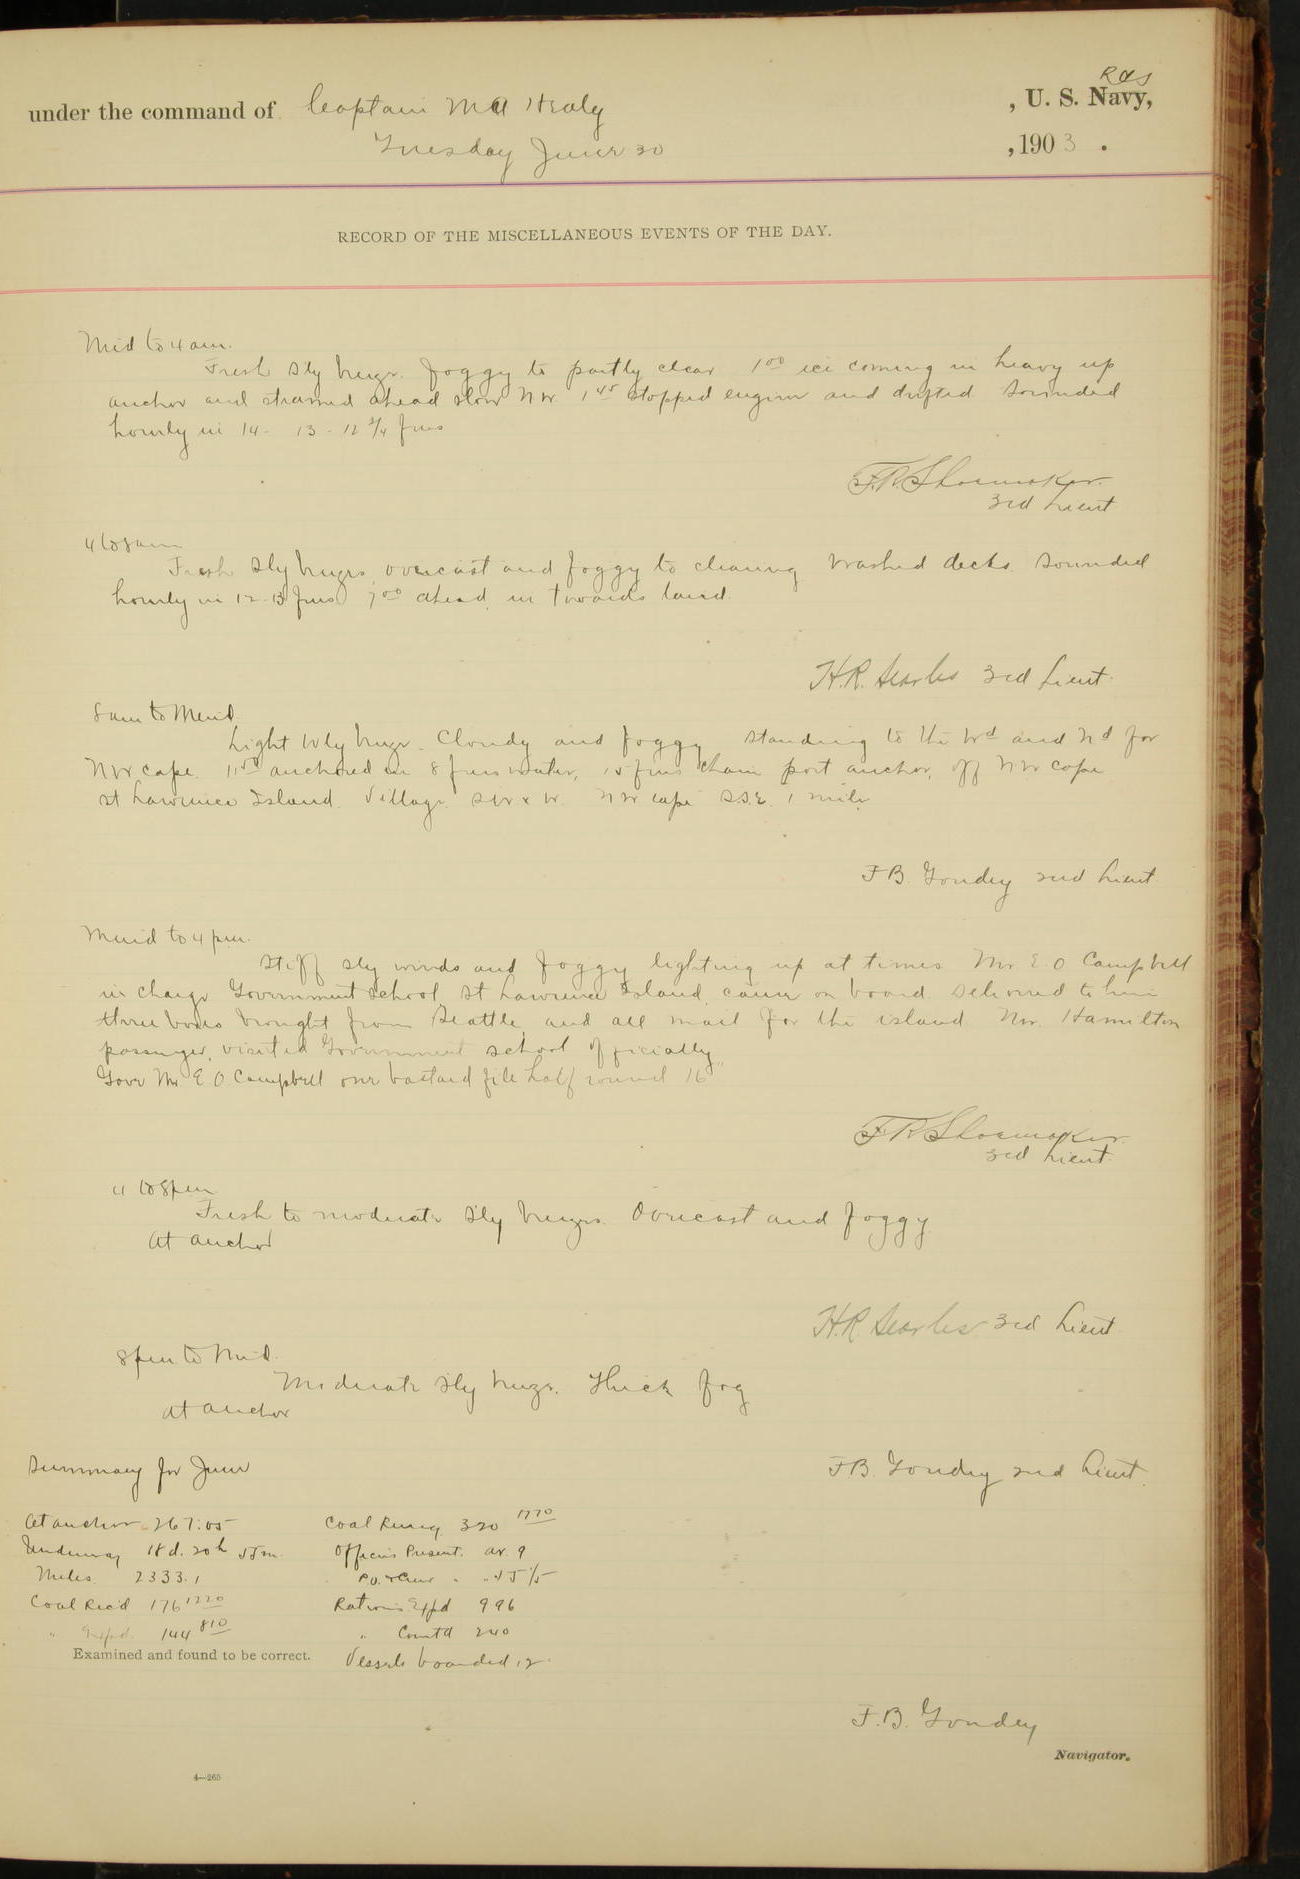 under the command of Captain MA Healy , U. S. Navy, RCS
Tuesday June 30 , 1903 .
RECORD OF THE MISCELLANEOUS EVENTS OF THE DAY.
Mid to 4 am.
Fresh Sly breeze. Foggy to partly clear 1 00 ice coming in heavy up
anchor and steamed ahead slow NW 1 45 stopped engine and drifted Sounded
hourly in 14 - 13 - 12 3/4 fms
F.R. Shoemaker.
3rd Lieut
4 to 8 am
Fresh Sly breezes, overcast and foggy to clearing Washed decks. Sounded
hourly in 12-13 fms 7 00 ahead in towards land.
H.R. Searles 3rd Lieut.
8 am to Merid
Light Wly breeze. Cloudy and foggy standing to the Wd and Nd for
NW cape. 11 50 anchored in 8 fms water, 15 fms chain port anchor, off NW Cape
St Lawrence Island. Village SW x W. NW cape SSE. 1 mile
F B. Goudey 2nd Lieut.
Merid to 4 pm.
Stiff Sly winds and foggy lighting up at times Mr E. O Campbell
in charge Government School, St Lawrence Island, came on board. delivered to him
three boxes brought from Seattle, and all mail for the island. Mr. Hamilton
passenger, visited Government school officially
Gave Mr E O Campbell one bastard file half round 16"
F R Shoemaker.
3rd Lieut.
4 to 8 pm
Fresh to moderate Sly breezes. Overcast and foggy.
At anchor
H.R. Searles 3rd Lieut.
8 pm to Mid.
Moderate Sly breeze. Thick fog
At anchor
F B. Goudey 2nd Lieut.
Summary for June
At anchor 267:05 Coal Remg 320 1770
Underway 18 d. 20 h 55 m. Officers Present. av. 9
Miles 2333.1 P.O. & Crew " " 45 1/5
Coal Rec'd 176 1220 Rations Expd 996
" Expd. 144 810 " Com't'd 240
Examined and found to be correct. Vessels boarded 12.
F. B. Goudey
Navigator.
4—265